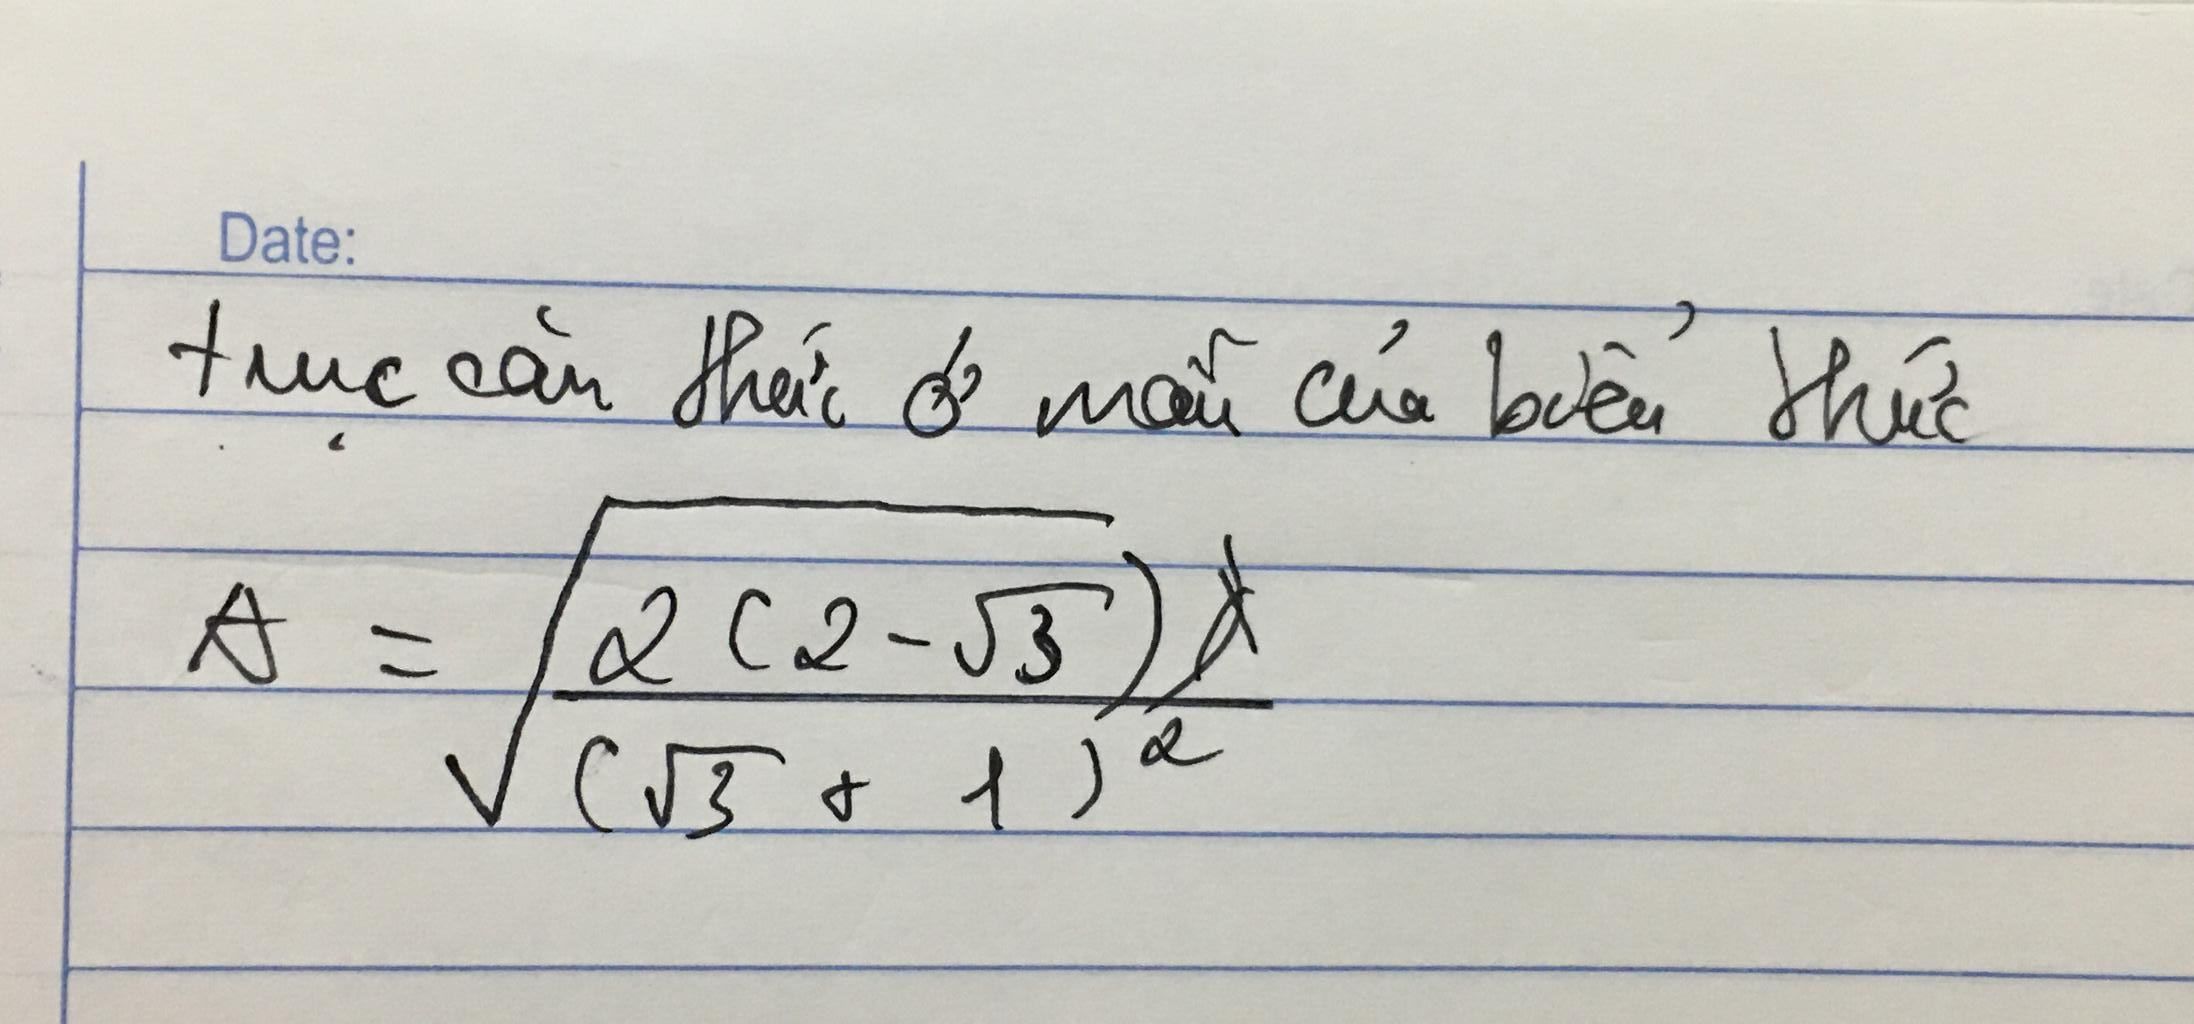 Date:
trục căn thức ở mẫu của biểu thức
A = √(2(2-√3) / (√3 + 1)²)